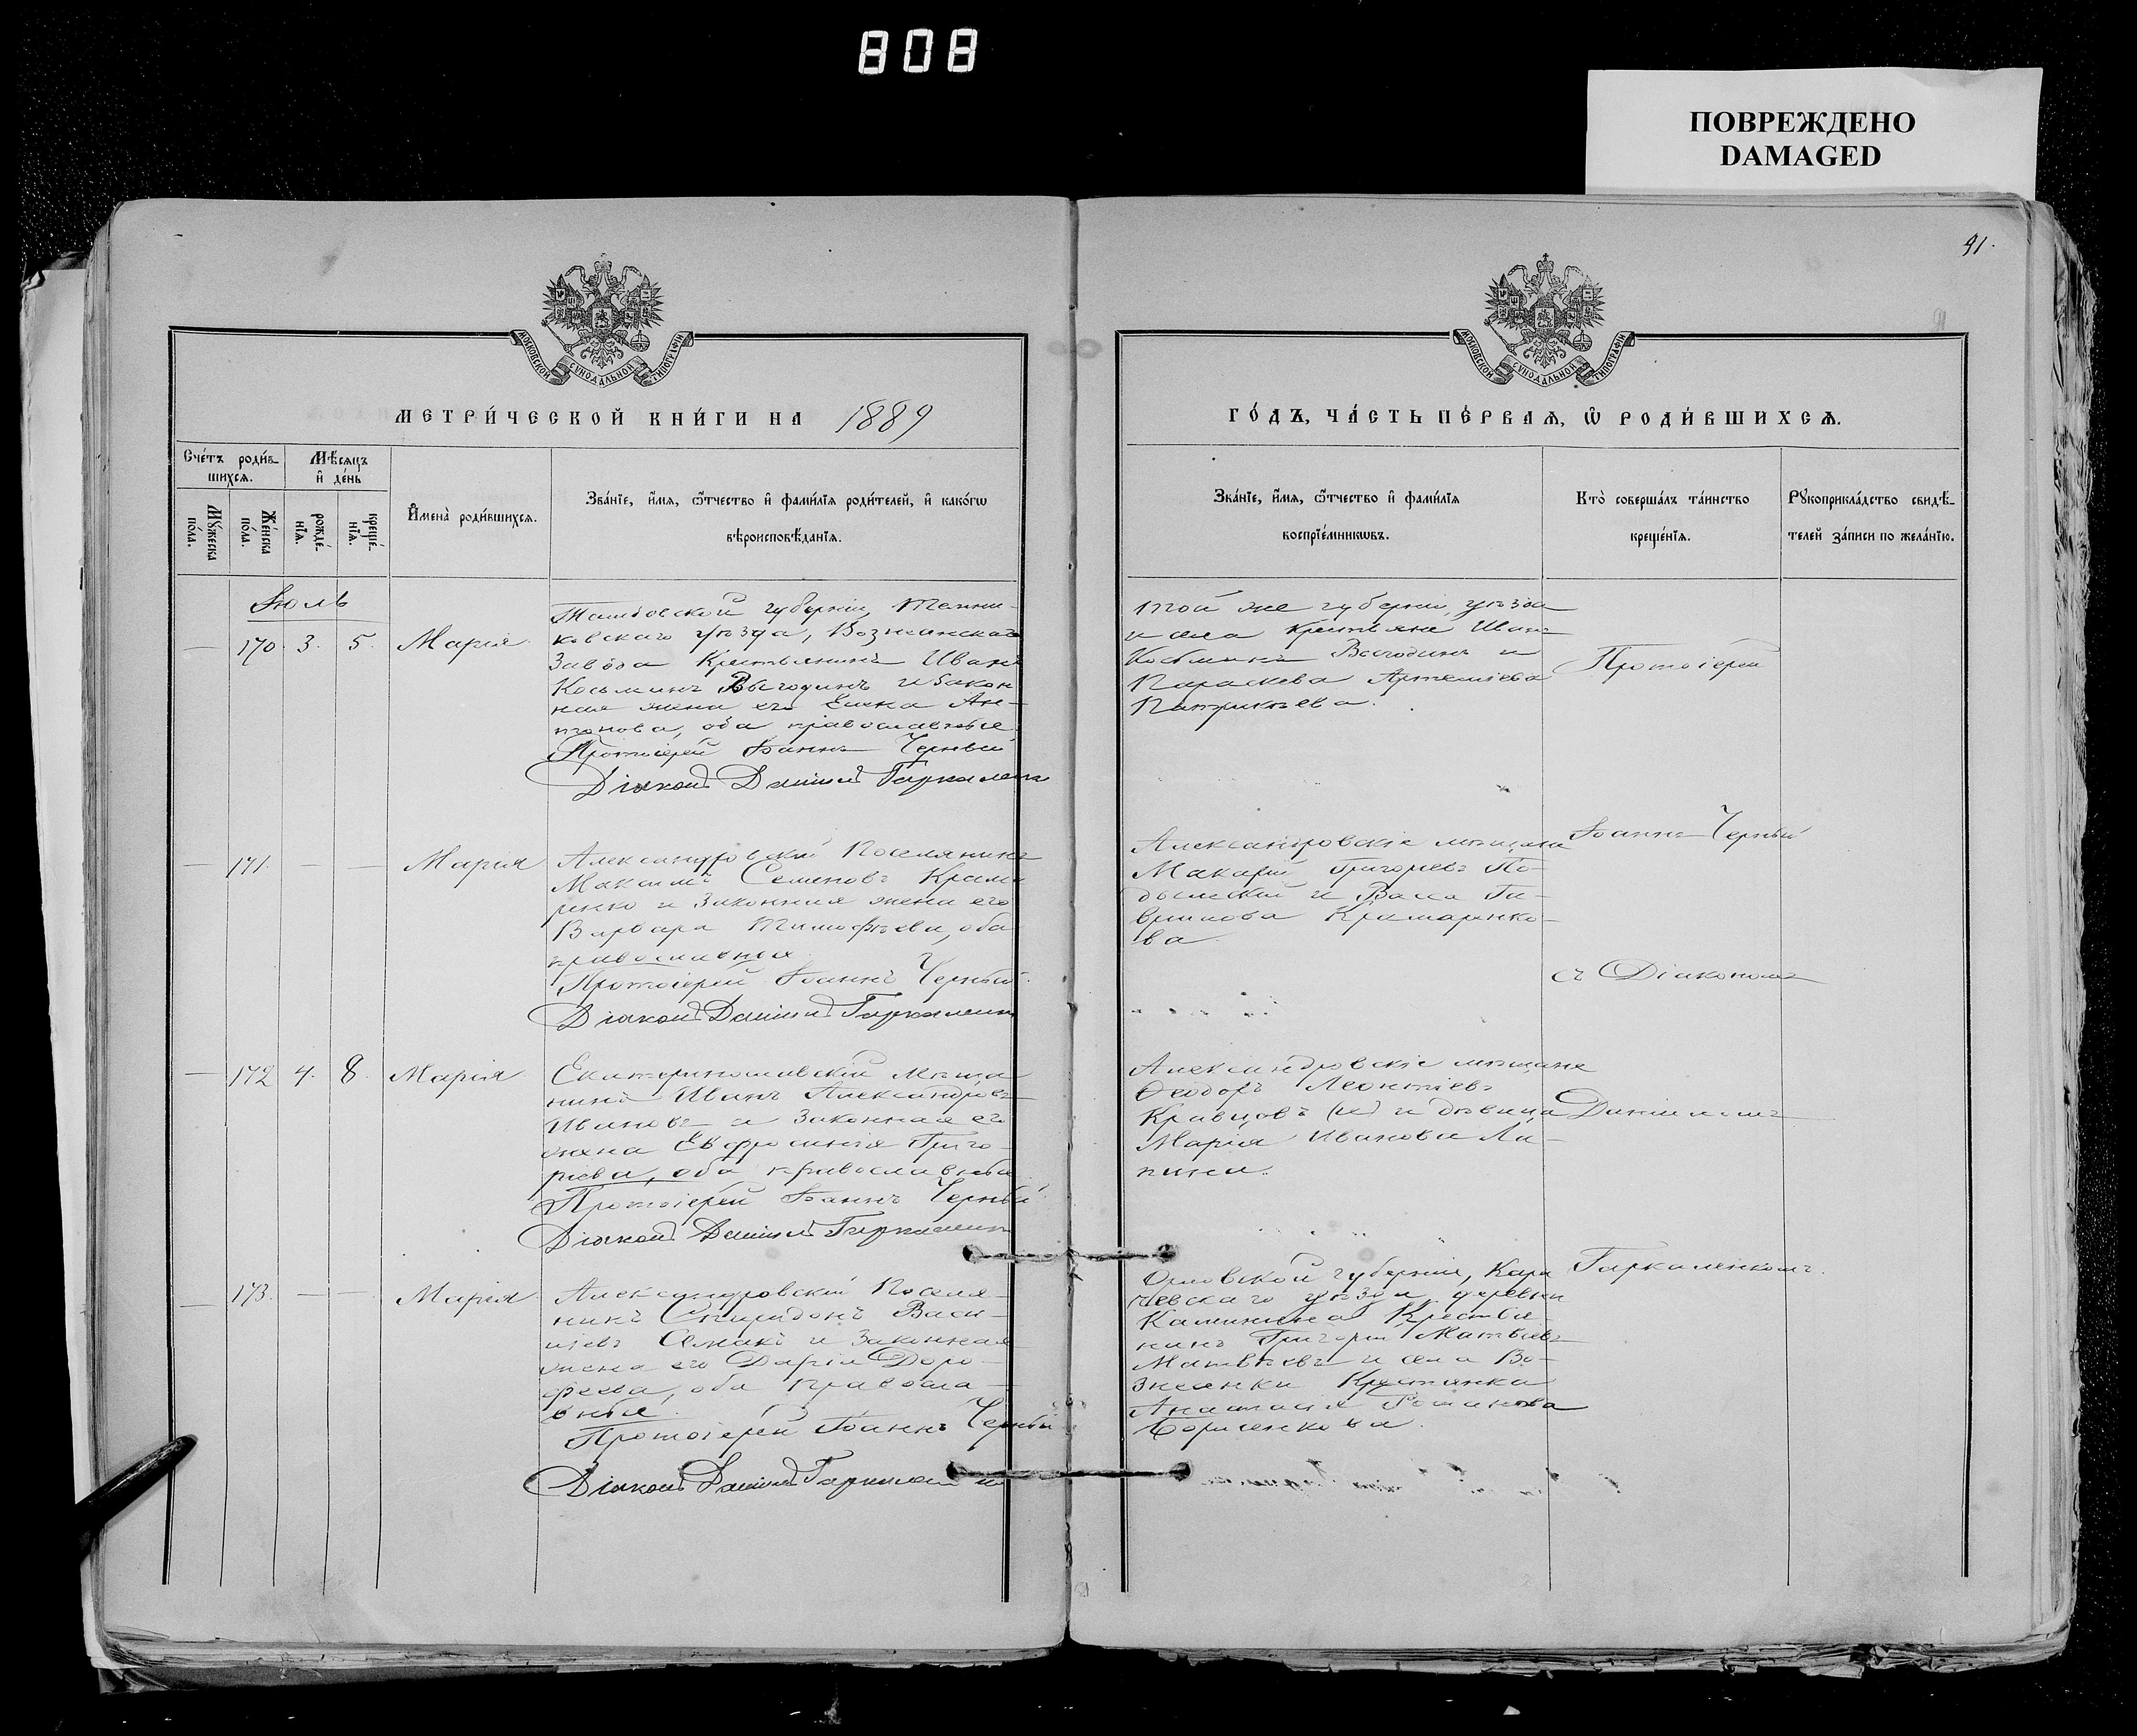 808
ПОВРЕЖДЕНО
DAMAGED
91.
МОСКОВСКОЙ СѴНОДАЛЬНОЙ ТИПОГРАФІИ
МОСКОВСКОЙ СѴНОДАЛЬНОЙ ТИПОГРАФІИ
МЕТРИ́ЧЕСКОЙ КНИ́ГИ НА 1889
ГО́ДЪ, ЧА́СТЬ ПЕ́РВАѦ, Ѡ҆ РОДИ́ВШИХСѦ.
Сче́тъ роди́в-
шихсѧ.
Мѣ́сѧцъ
и҆ де́нь
Мꙋ́жеска
по́ла.
Же́нска
по́ла.
рожде́-
нїѧ.
креще́-
нїѧ.
И҆мена̀ роди́вшихсѧ.
Зва́нїе, и҆́мѧ, ѻ҆́тчество и҆ фами́лїѧ роди́телей, и҆ како́гѡ
вѣроисповѣ́данїѧ.
Зва́нїе, и҆́мѧ, ѻ҆́тчество и҆ фами́лїѧ
воспрїе́мникѡвъ.
Кто̀ соверша́лъ та́инство
креще́нїѧ.
Рꙋкоприкла́дство свидѣ́-
телей за́писи по жела́нїю.
Іюль
— 170. 3. 5. Марія
Тамбовской губерніи, Темни-
ковскаго уѣзда, Вознесенскаго
Завода Крестьянинъ Иванъ
Косьминъ Выгодинъ и закон
ная жена его Елена Ан-
тонова, оба православные.
Протоіерей Іоаннъ Черный
Діаконъ Даніилъ Гаркаленко
той же губерніи, уѣзда
и села крестьяне Иванъ
Косьминъ Выгодинъ и
Параскева Артеміева
Патрикѣева.
Протоіерей
— 171. — — Марія
Александровскій Поселянинъ
Максимъ Семеновъ Крама
ренко и законная жена его
Варвара Тимофѣева, оба
православные.
Протоіерей Іоаннъ Черный.
Діаконъ Даніилъ Гаркаленко
Александровскіе мѣщане
Макарій Григорьевъ По-
дольскій и Васса Га-
врилова Крамаренко-
ва.
Іоаннъ Черный
съ Діакономъ
— 172 4. 8. Марія
Екатеринославскій Мѣща
нинъ Иванъ Александровъ
Ивановъ и законная его
жена Евфросинія Григо-
рьева, оба православные
Протоіерей Іоаннъ Черный
Діаконъ Даніилъ Гаркаленко
Александровскіе мѣщане
Ѳеодоръ Леонтіевъ
Кравцовъ и дѣвица
Марія Иванова Ла-
пина.
Даніиломъ
— 173. — — Марія
Александровскій Поселя-
нинъ Спиридонъ Васи-
льевъ Семакъ и законная
жена его Дарія Доро-
феева, оба правосла-
вные.
Протоіерей Іоаннъ Черный
Діаконъ Даніилъ Гаркаленко
Орловской губерніи, Кара
чевскаго уѣзда деревни
Калинина Крестья-
нинъ Григорій Матвѣевъ
Матвѣевъ и села Во-
знесенки Крестьянка
Анастасія Романова
Борисенкова.
Гаркаленкомъ.